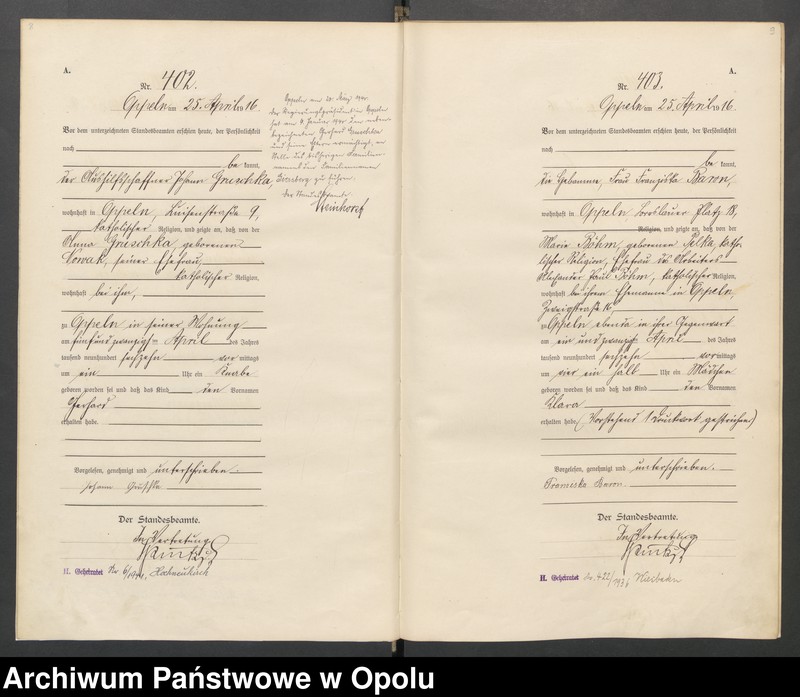 8
A.
Nr. 402.
Oppeln am 25. April 1916.
Vor dem unterzeichneten Standesbeamten erschien heute, der Persönlichkeit
nach
be kannt,
der Aushilfsschaffner Johann Grieschka,
wohnhaft in Oppeln, Luisenstraße 9,
katholischer Religion, und zeigte an, daß von der
Anna Grieschka, geborenen
Nowak, seiner Ehefrau,
katholischer Religion,
wohnhaft bei ihm,
zu Oppeln in seiner Wohnung
am fünfundzwanzigsten April des Jahres
tausend neunhundert sechzehn vor mittags
um ein Uhr ein Knabe
geboren worden sei und daß das Kind den Vornamen
Gerhard
erhalten habe.
Vorgelesen, genehmigt und unterschrieben
Johann
Der Standesbeamte.
In Vertretung
H. Geheiratet Nr.
Oppeln, am 28. März 1940
Der Regierungspräsident in Oppeln
hat am Januar 1940 dem neben
bezeichneten Gerhard Grieschka
und seinen Eltern
Stelle des bisherigen Familien
namens den Familiennamen
zu führen.
Der Standesbeamte
Weinhorst
9
A.
Nr. 403.
Oppeln am 25. April 1916.
Vor dem unterzeichneten Standesbeamten erschien heute, der Persönlichkeit
nach
be kannt,
die Hebamme, Frau Franziska Baron,
wohnhaft in Oppeln Breslauer Platz 18,
Religion, und zeigte an, daß von der
Marie Böhm, geborenen Pelka, katho-
lischer Religion, Ehefrau des Arbeiters
Alexander Paul Böhm, katholischer Religion,
wohnhaft bei ihrem Ehemanne in Oppeln,
Zweigstraße 10
zu Oppeln ebenda in ihrer Gegenwart
am einundzwanzigsten April des Jahres
tausend neunhundert sechzehn vor mittags
um vier ein halb Uhr ein Mädchen
geboren worden sei und daß das Kind den Vornamen
Klara
erhalten habe. (Vorstehend 1 Druckwort gestrichen)
Vorgelesen, genehmigt und unterschrieben.
Franziska Baron
Der Standesbeamte.
In Vertretung
H. Geheiratet No. 422/1936
Archiwum Państwowe w Opolu